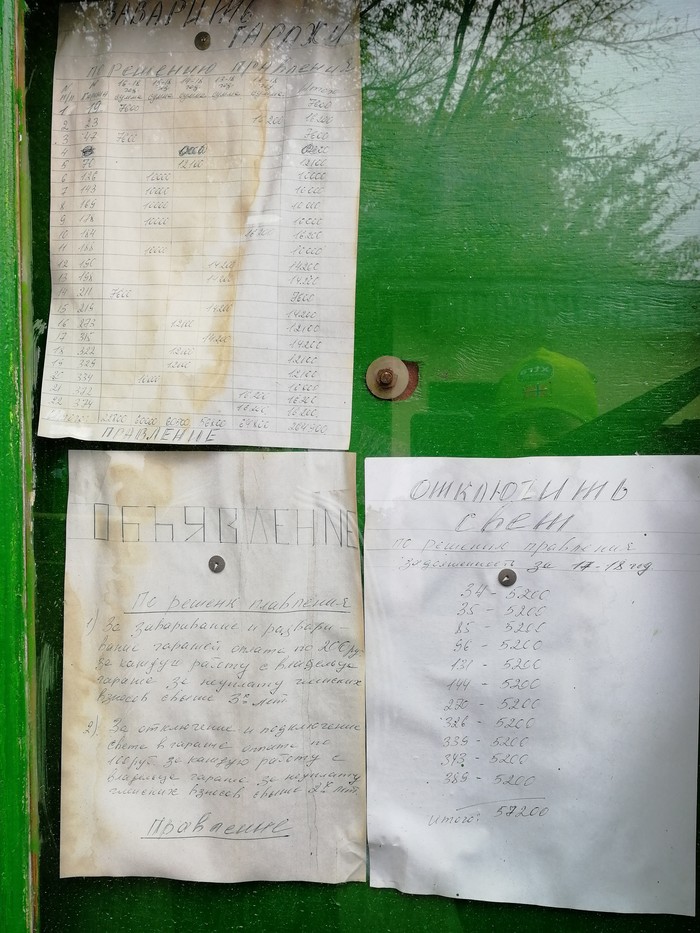 ЗАВАРИТЬ
ГАРАЖИ
ПО РЕШЕНИЮ ПРАВЛЕНИЯ
1 10 7600 7600
2 23 16200 16200
3 47 7600 7600
5 70 12100 12100
6 136 10000 10000
7 143 10000 10000
8 169 10000 10000
9 178 10000 10000
10 184 16200 16200
11 188 10000 10000
12 190 14200 14200
13 198 14200 14200
14 211 7600 7600
15 219 14200 14200
16 273 12100 12100
17 315 14200 14200
18 322 12100 12100
19 329 12100 12100
20 339 10000 10000
21 372 16200 16200
22 374 16200 16200
ПРАВЛЕНИЕ
ОБЪЯВЛЕНИЕ
По решени правления
1) За заваривание и развари-
вание гаражей оплата по 200 руб
за каждую работу с владельца
гаража за неуплату членских
взносов свыше 3х лет
2) За отключение и подключение
света в гараже оплата по
100 руб за каждую работу с
владельца гаража за неуплату
членских взносов свыше 2х лет
Правление
ОТКЛЮЧИТЬ
свет
по решения правления
задолженность за 17-18 год
34 - 5200
35 - 5200
85 - 5200
96 - 5200
131 - 5200
144 - 5200
270 - 5200
326 - 5200
339 - 5200
343 - 5200
389 - 5200
итого: 57200